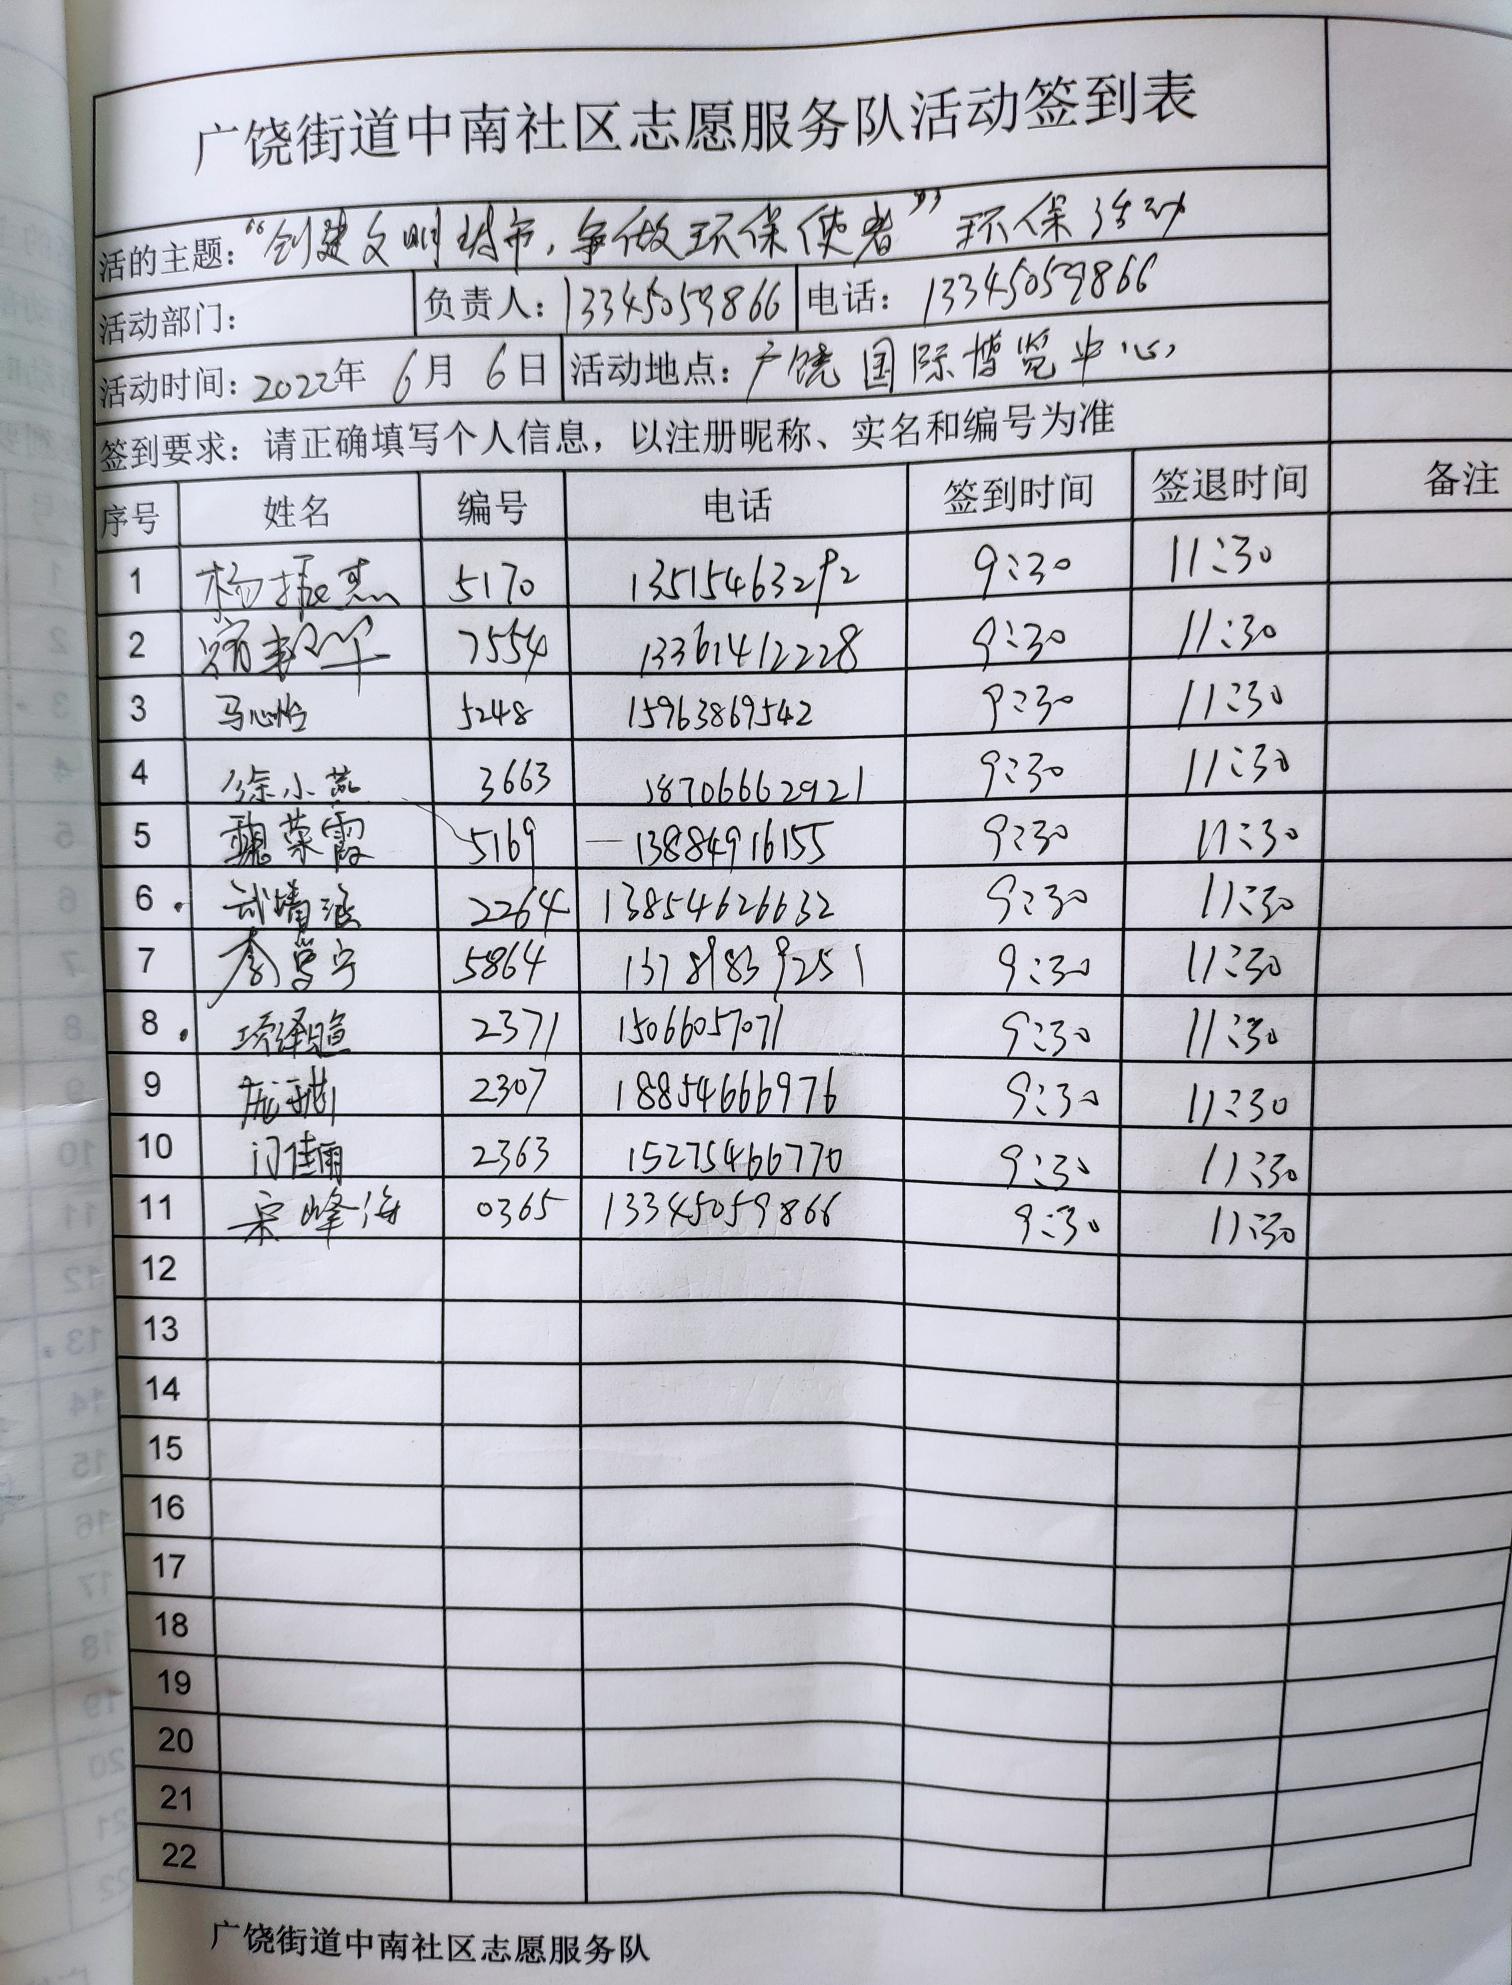 广饶街道中南社区志愿服务队活动签到表
活的主题：“创建文明城市，争做环保使者” 环保活动
活动部门： 负责人：13345059866 电话：13345059866
活动时间：2022年 6月 6日 活动地点：广饶国际博览中心
签到要求：请正确填写个人信息，以注册昵称、实名和编号为准
序号 姓名 编号 电话 签到时间 签退时间 备注
1 杨振杰 5170 13515463292 9:30 11:30
2 7554 13361412228 9:30 11:30
3 马心怡 5248 15963869542 9:30 11:30
4 徐小燕 3663 18706662921 9:30 11:30
5 魏荣霞 5169 13884916155 9:30 11:30
6 2264 13854626632 9:30 11:30
7 5864 13789839251 9:30 11:30
8 2371 15066057071 9:30 11:30
9 2307 18854666976 9:30 11:30
10 门佳雨 2363 15275466770 9:30 11:30
11 宋峰海 0365 13345059866 9:30 11:30
12
13
14
15
16
17
18
19
20
21
22
广饶街道中南社区志愿服务队